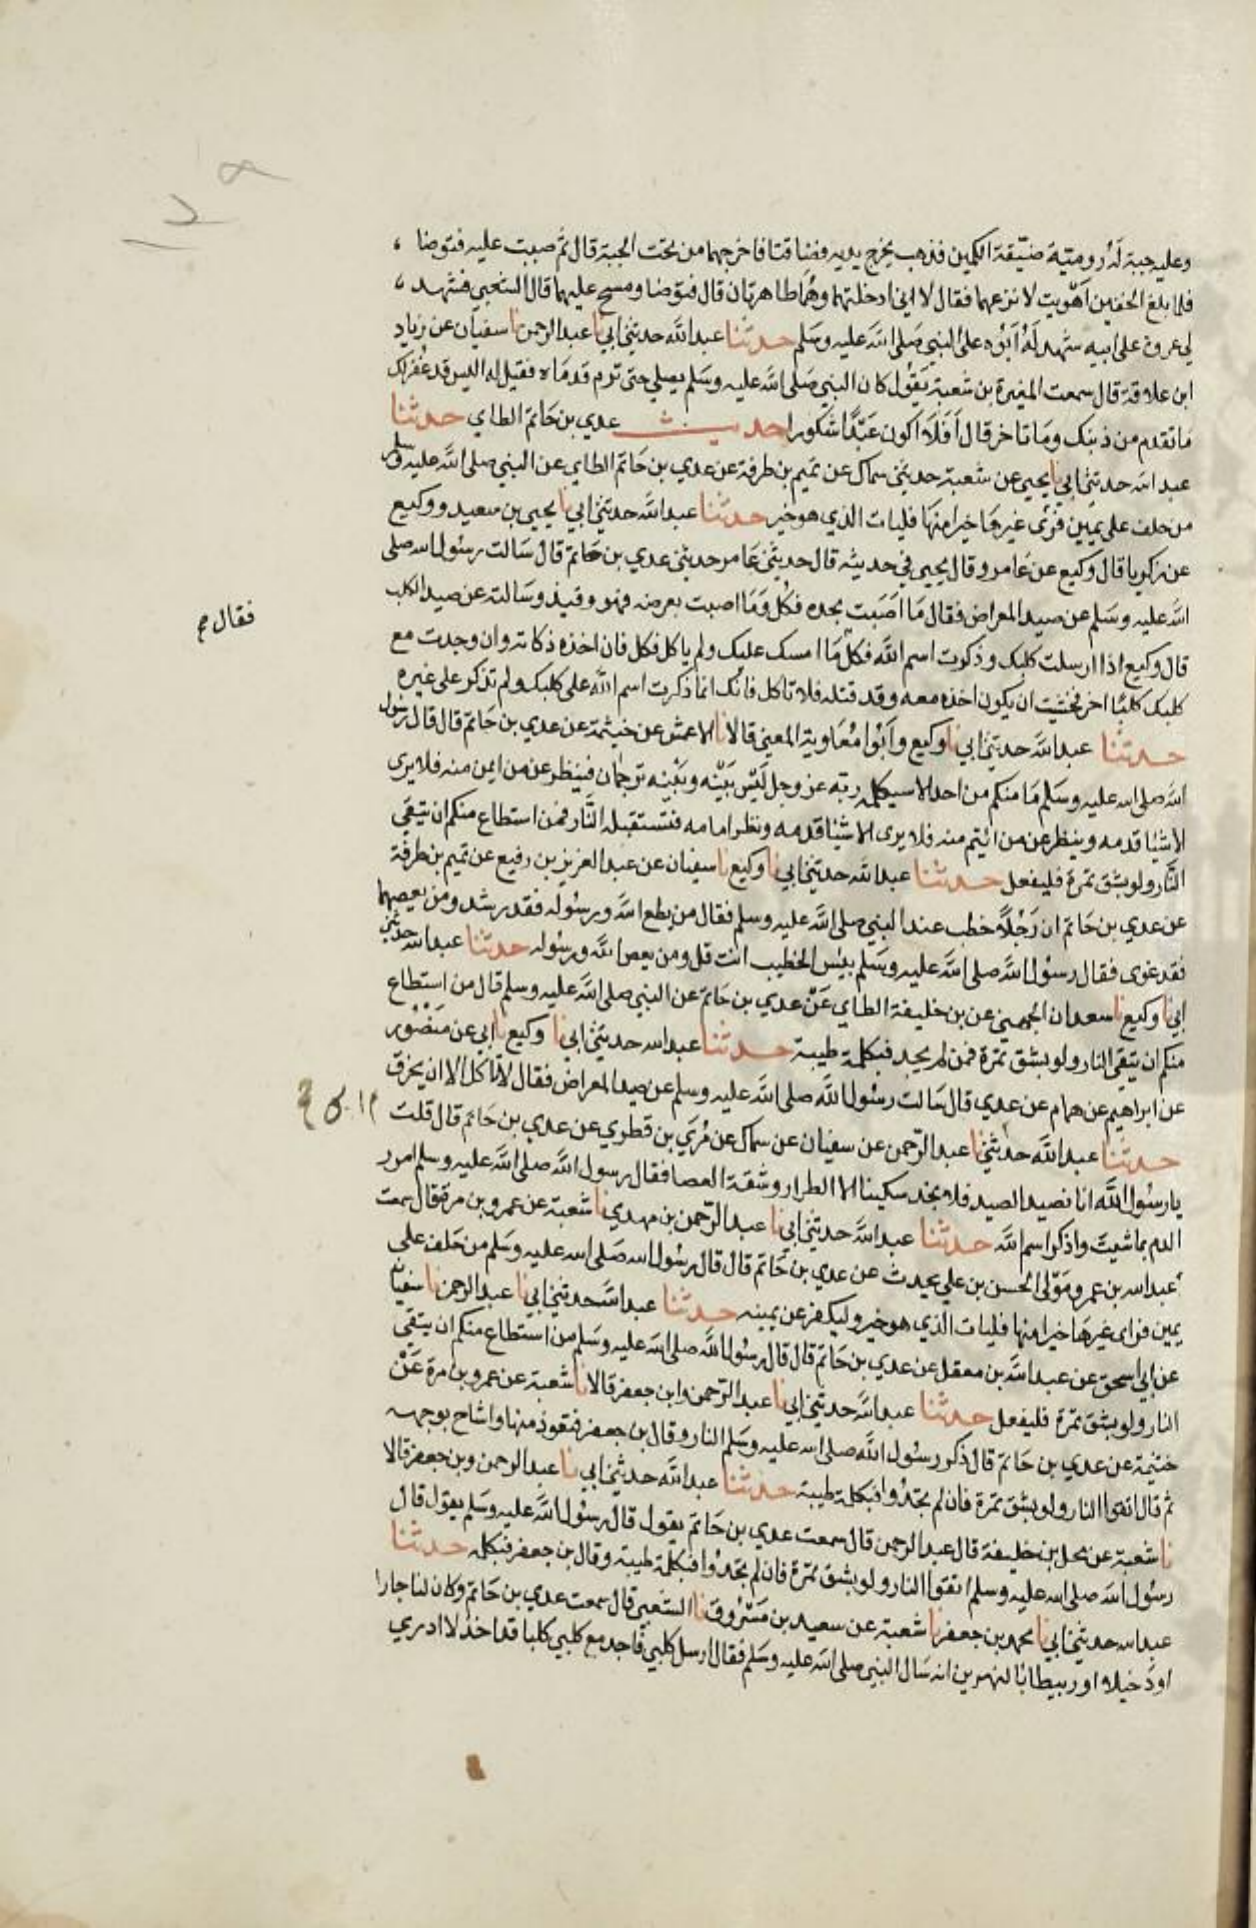 وعليه جبة له رومية ضيقة الكمين فذهب يخرج يديه فضاقتا فاخرجهما من تحت الجبة قال ثم صببت عليه فتوضا ،
فلما بلغ الخفين اهويت لانزعهما فقال لا اني ادخلتهما وهما طاهرتان قال فتوضا ومسح عليهما قال الشعبي فشهد ،
لي عروة على ابيه شهد له ابوه على النبي صلى الله عليه وسلم حدثنا عبد الله حدثني ابي نا عبد الرحمن نا سفيان عن زياد
ابن علاقة قال سمعت المغيرة بن شعبة يقول كان النبي صلى الله عليه وسلم يصلي حتى ترم قدماه فقيل له اليس قد غفر لك
ما تقدم من ذنبك وما تاخر قال افلا اكون عبدا شكورا حديث عدي بن حاتم الطاي حدثنا
عبد الله حدثني ابي نا يحيى عن شعبة حدثني سماك عن تميم بن طرفة عن عدي بن حاتم الطاي عن النبي صلى الله عليه وسلم
من حلف على يمين فرى غيرها خيرا منها فليات الذي هو خير حدثنا عبد الله حدثني ابي نا يحيى بن سعيد ووكيع
عن زكريا قال وكيع عن عامر وقال يحيى في حديثه قال حدثني عامر حدثني عدي بن حاتم قال سالت رسول الله صلى
الله عليه وسلم عن صيد المعراض فقال ما اصبت بحده فكل وما اصبت بعرضه فهو وقيذ وسالته عن صيد الكلب
فقال صح
قال وكيع اذا ارسلت كلبك وذكرت اسم الله فكل ما امسك عليك ولم ياكل فكل فان اخذه ذكاته وان وجدت مع
كلبك كلبا اخر فخشيت ان يكون اخذه معه وقد قتله فلا تاكل فانك انما ذكرت اسم الله على كلبك ولم تذكر على غيره
حدثنا عبد الله حدثني ابي نا وكيع وابوا معاوية المعنى قالا نا الاعمش عن خيثمة عن عدي بن حاتم قال قال رسول
الله صلى الله عليه وسلم ما منكم من احد الا سيكلمه ربه عز وجل ليس بينه وبينه ترجمان فينظر عن من ايمن منه فلا يرى
الا شيئا قدمه وينظر عن من اشيم منه فلا يرى الا شيئا قدمه ونظر امامه فتستقبله النار فمن استطاع منكم ان يتقى
النار ولو بشق تمرة فليفعل حدثنا عبد الله حدثني ابي نا وكيع نا سفيان عن عبد العزيز بن رفيع عن تميم بن طرفة
عن عدي بن حاتم ان رجلا خطب عند النبي صلى الله عليه وسلم فقال من يطع الله ورسوله فقد رشد ومن يعصهما
فقد غوى فقال رسول الله صلى الله عليه وسلم بئس الخطيب انت قل ومن يعص الله ورسوله حدثنا عبد الله حدثني
ابي نا وكيع نا سعدان الجهني عن بن خليفة الطاي عن عدي بن حاتم عن النبي صلى الله عليه وسلم قال من استطاع
منكم ان يتقى النار ولو بشق تمرة فمن لم يجد فبكلمة طيبة حدثنا عبد الله حدثني ابي نا وكيع نا ابي عن منصور
عن ابراهيم عن همام عن عدي قال سالت رسول الله صلى الله عليه وسلم عن صيد المعراض فقال لا تاكل الا ان يخزق
حدثنا عبد الله حدثني نا عبد الرحمن عن سفيان عن سماك عن مري بن قطري عن عدي بن حاتم قال قلت
يا رسول الله انا نصيد الصيد فلا نجد سكينا الا الظرار وشقة العصا فقال رسول الله صلى الله عليه وسلم امرر
الدم بما شيت واذكر اسم الله حدثنا عبد الله حدثني ابي نا عبد الرحمن بن مهدي نا شعبة عن عمرو بن مرة قال سمعت
عبد الله بن عمرو مولى الحسن بن علي يحدث عن عدي بن حاتم قال قال رسول الله صلى الله عليه وسلم من حلف على
يمين فراى غيرها خيرا منها فليات الذي هو خير وليكفر عن يمينه حدثنا عبد الله حدثني ابي نا عبد الرحمن نا سفيان
عن ابي اسحق عن عبد الله بن معقل عن عدي بن حاتم قال قال رسول الله صلى الله عليه وسلم من استطاع منكم ان يتقى
النار ولو بشق تمرة فليفعل حدثنا عبد الله حدثني ابي نا عبد الرحمن وابن جعفر قالا نا شعبة عن عمرو بن مرة عن
خثيمة عن عدي بن حاتم قال ذكر رسول الله صلى الله عليه وسلم النار وقال بن جعفر فتعوذ منها واشاح بوجهه
ثم قال اتقوا النار ولو بشق تمرة فان لم تجدوا فبكلمة طيبة حدثنا عبد الله حدثني ابي نا عبد الرحمن وبن جعفر قالا
نا شعبة عن محل بن خليفة قال عبد الرحمن قال سمعت عدي بن حاتم يقول قال رسول الله عليه وسلم يقول قال
رسول الله صلى الله عليه وسلم اتقوا النار ولو بشق تمرة فان لم تجدوا فبكلمة طيبة وقال بن جعفر فبكلمه حدثنا
عبد الله حدثني ابي نا محمد بن جعفر نا شعبة عن سعيد بن مسروق نا الشعبي قال سمعت عدي بن حاتم وكان لنا جارا
او دخيلا او ربيطا بالنهرين انه سال النبي صلى الله عليه وسلم فقال ارسل كلبي فاجد مع كلبي كلبا قد اخذ لا ادري